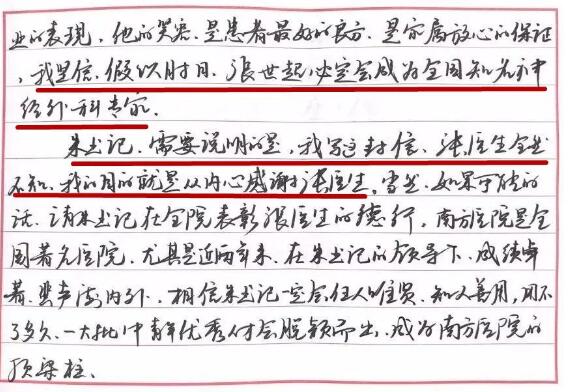 业的表现，他的笑容、是患者最好的良方、是家属放心的保证
，我坚信、假以时日、张世起必定会成为全国知名神
经外科专家。
朱书记、需要说明的是，我写这封信、张医生全然
不知、我的目的就是从内心感谢张医生，当然、如果可能的
话、请朱书记在全院表彰张医生的德行，南方医院是全
国著名医院、尤其是近两年来、在朱书记的领导下、成绩卓
著、蜚声海内外、相信朱书记一定会任人唯贤、知人善用，用不
了多久、一大批中青年优秀人才会脱颖而出、成为南方医院的
顶梁柱、